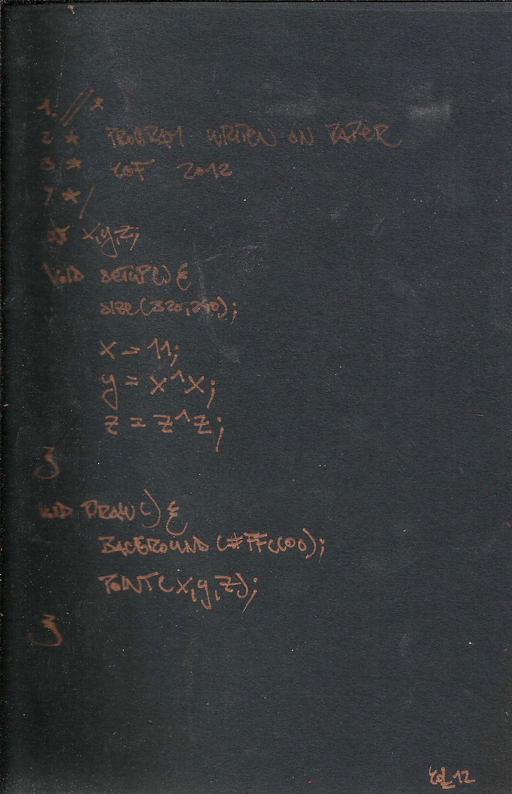 1. //*
2 * PROGRAM WRITTEN ON PAPER
3 * 2012
*/
x,y,z;
VOID SETUP() {
SIZE(320,240);
x = 11;
y = x^x;
z = z^z;
}
VOID DRAW() {
BACKGROUND(#FFCC00);
POINT(x,y,z);
}
12